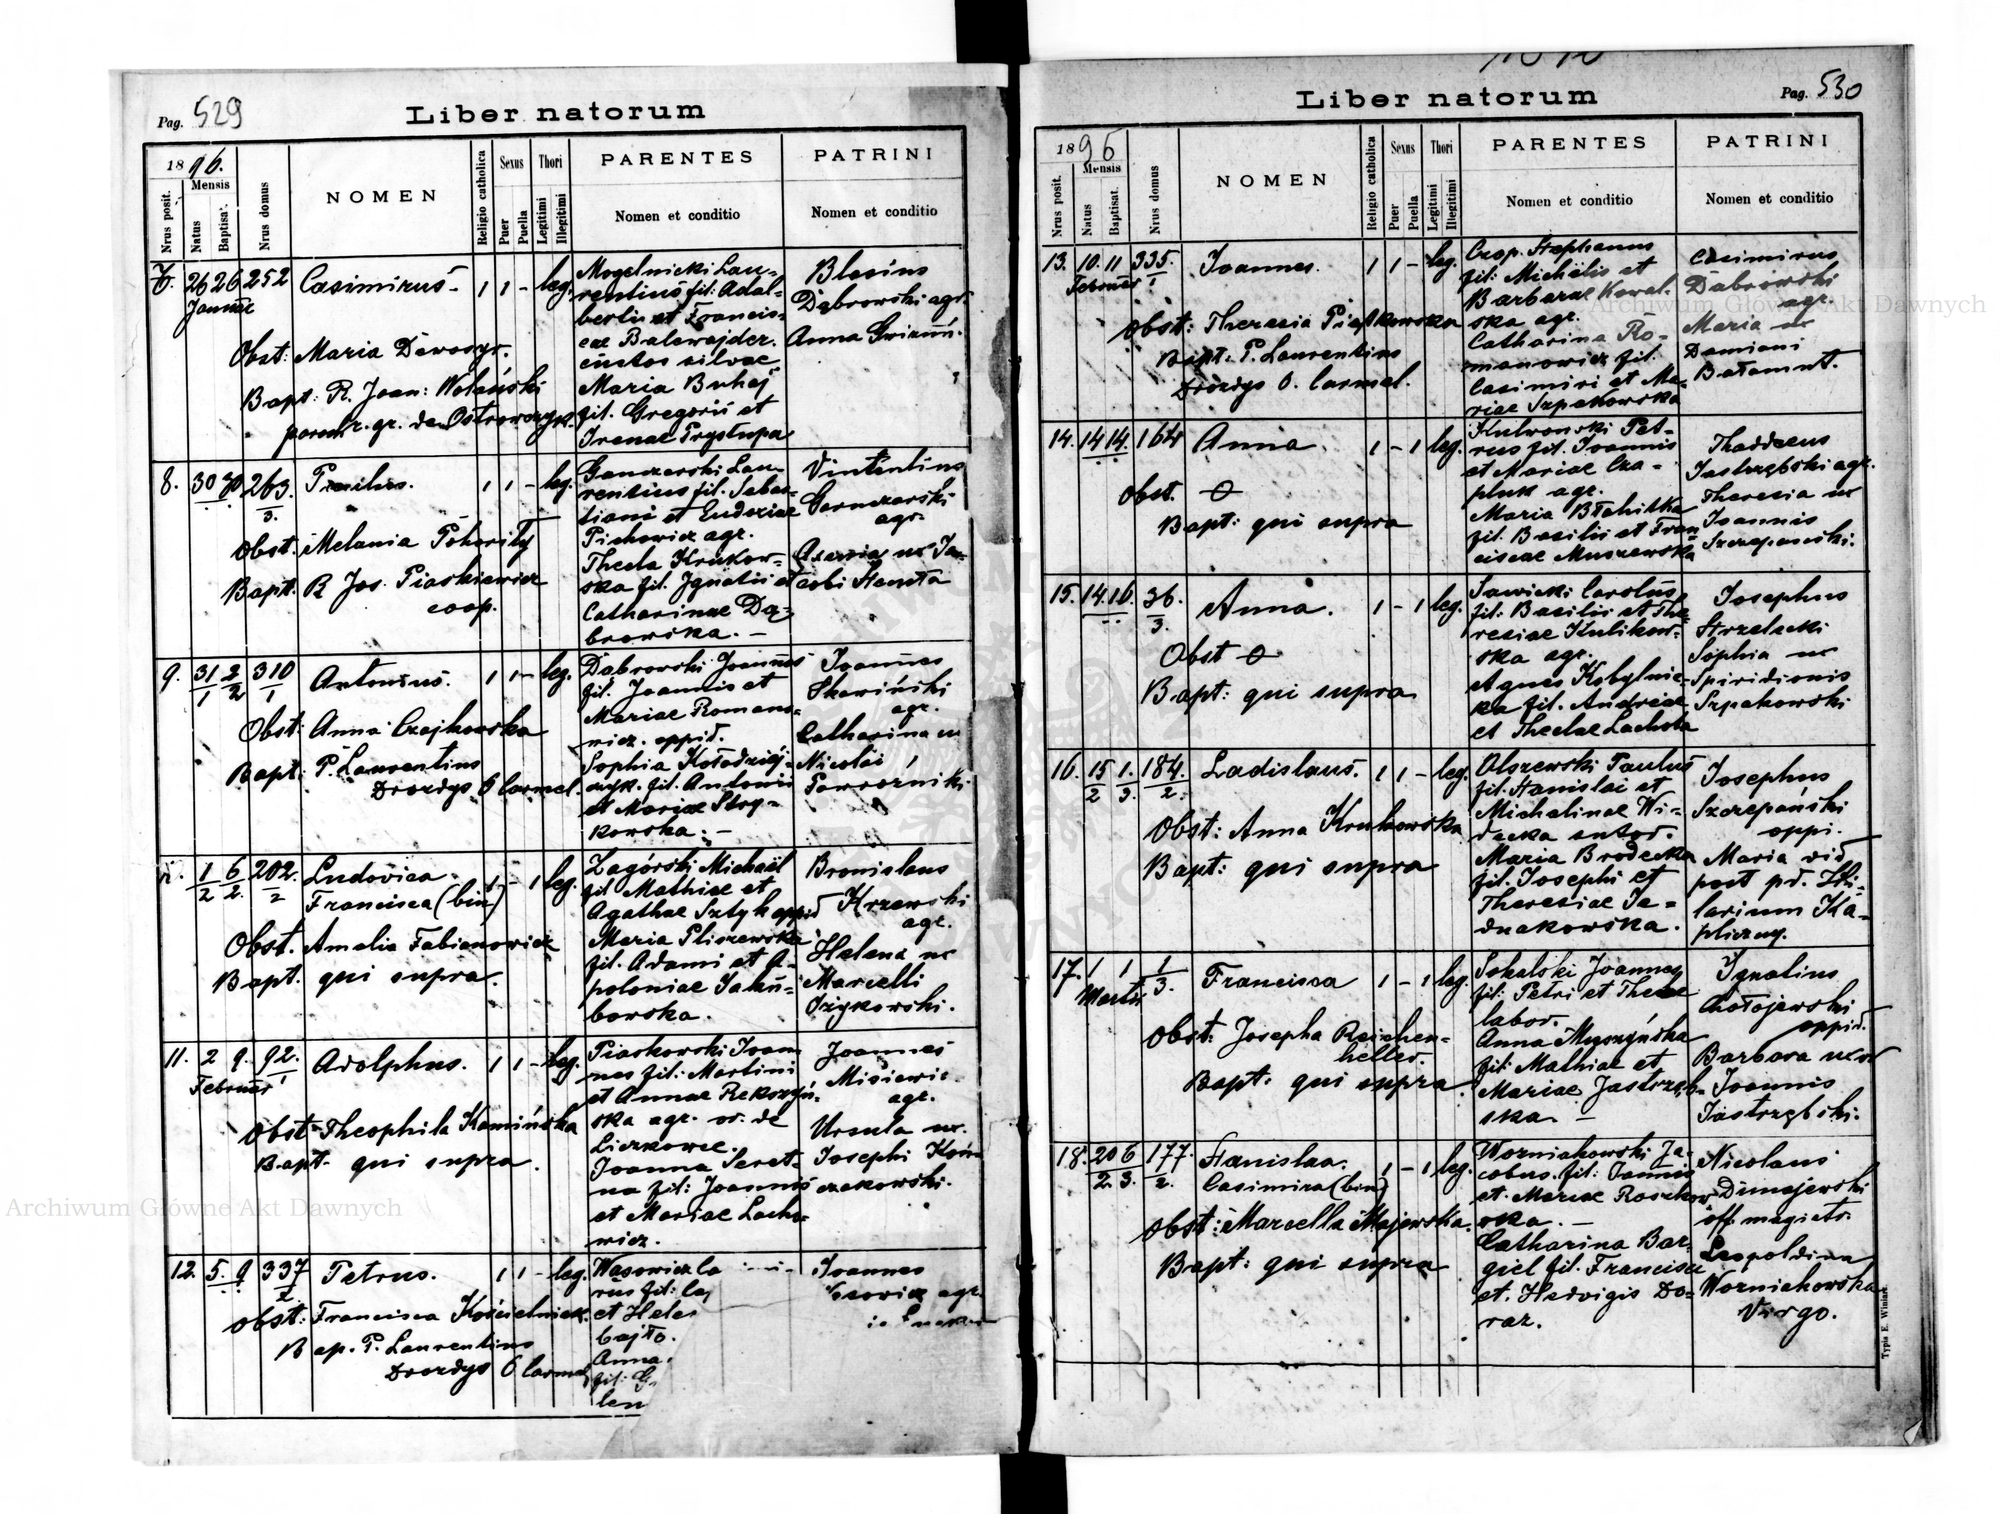 Pag. 529
Liber natorum
1896.
Nrus posit.
Mensis
Natus
Baptisat.
Nrus domus
NOMEN
Religio catholica
Sexus
Puer
Puella
Thori
Legitimi
Illegitimi
PARENTES
Nomen et conditio
PATRINI
Nomen et conditio
7. 26 26 252 Casimirus 1 1 - leg.
Januar
Obst: Maria
Bapt: R. Joan: Wolański
paroch. r. gr. de
Mogelnicki Lau-
rentius fil: Adal-
berti et Francis-
cae
custos silvae
Maria Buhaj
fil. Gregorii et
Irenae Prystupa
Blasius
Dąbrowski agr.
Anna
8. 30 30 263. 1 1 - leg.
3.
Obst. Melania
Bapt. R. Jos. Piaskiewicz
coop.
Lau-
rentius fil. Sebas-
tiani et Eudoxiae
agr.
Thecla Krukow-
ska fil. Ignatii et
Catharinae Dą-
browska. -
Vincentius
agr.
ux Ja-
cobi
9. 31/1 2/2 310/1 Antonius. 1 1 - leg.
Obst: Anna Czajkowska
Bapt: P. Laurentius
Drozdys O. Carmel.
Dąbrowski Joannes
fil. Joannis et
Mariae Romano-
wicz. oppid.
Sophia Kołodziej-
czyk. fil. Antonii
et Mariae Stry-
kowska. -
Joannes
Skowiński
agr.
Catharina ux
Nicolai
1/2 6/2. 202./2 Ludovica. 1 - 1 leg.
Francisca (bin)
Obst. Amalia Fabianowicz
Bapt. qui supra.
Zagórski Michaël
fil Mathiae et
Agathae Sztyk oppid
Maria Pliszewska
fil. Adami et A-
poloniae Jaku-
bowska.
Bronislaus
Krzewski
agr.
Helena ux
Marcelli
11. 2 9. 92./1 Adolphus. 1 1 - leg.
Februar
Obst. Theophila Kamińska
Bapt. qui supra.
Piaskowski Joan-
nes fil: Martini
et Annae
ska agr. or. de
Liczkowce.
Joanna Seret-
na fil: Joannis
et Mariae Lacho-
wicz.
Joannes
agr.
Ursula ux.
Josephi
czakowski.
12. 5. 9. 337/2 Petrus. 1 1 - leg.
Obst: Francisca
Bap. P. Laurentius
Drozdys O Carmel
Wąsowicz
rus fil:
et
Anna.
fil:
Joannes
agr.
Pag. 530
Liber natorum
1896
Nrus posit.
Mensis
Natus
Baptisat.
Nrus domus
NOMEN
Religio catholica
Sexus
Puer
Puella
Thori
Legitimi
Illegitimi
PARENTES
Nomen et conditio
PATRINI
Nomen et conditio
13. 10. 11 335./1 Joannes. 1 1 - leg.
Februar
Obst: Theresia Piątkowska
Bapt. P. Laurentius
Drozdys O. Carmel.
Czop. Stephanus
fil: Michaelis et
Barbarae Kowal-
ska agr.
Catharina Ro-
manowicz fil.
Casimiri et Ma-
riae Szpakowska
Casimirus
Dąbrowski
agr.
Maria ux
Damiani
Bałamut.
14. 14 14. 164 Anna. 1 - 1 leg.
Obst. O
Bapt: qui supra
Pet-
rus fil. Joannis
et Mariae Cza-
pluk agr.
Maria
fil. Basilii et Fran-
ciscae Muszewska
Thaddaeus
Jastrzębski agr.
Theresia ux
Joannis
Szczepański.
15. 14. 16. 36./3. Anna. 1 - 1 leg.
Obst O
Bapt: qui supra
Sawicki Carolus
fil: Basilii et The-
resiae Kulikow-
ska agr.
Agnes Kobylnic-
ka fil. Andreae
et Theclae Lachota
Josephus
Strzelecki
Sophia ux
Spiridionis
Szpakowski
16. 15/2 1./3. 184./2. Ladislaus. 1 1 - leg.
Obst: Anna Krukowska
Bapt: qui supra
Olszewski Paulus
fil. Stanislai et
Michalinae Wi-
dacka sutor.
Maria Brodecka
fil. Josephi et
Theresiae Ja-
dnakowska.
Josephus
Szczepański
oppi.
Maria vid
post pd. Hi-
larium Ka-
pliczny.
17. 1 1 1/3. Francisca 1 - 1 leg.
Martii
Obst: Josepha Reichen-
heller.
Bapt: qui supra
Sokalski Joannes
fil: Petri et Theclae
labor.
Anna Myszyńska
fil: Mathiae et
Mariae Jastrzęb-
ska -
Ignatius
Chołojewski
oppid.
Barbara uxor
Joannis
Jastrzębski.
18. 20/2. 6/3. 177./2. Stanislaa. 1 - 1 leg.
Casimira (bin)
Obst: Marcella Majewska.
Bapt: qui supra
Worniakowski Ja-
cobus. fil: Joannis
et. Mariae Roszkow-
ska. -
Catharina Bar-
giel fil. Francisci
et. Hedvigis Do-
raz.
Nicolaus
Dunajewski
off. magistr.
Leopoldina
Worniakowska
Virgo.
Typis E. Winiarz
Archiwum Główne Akt Dawnych
Archiwum Główne Akt Dawnych